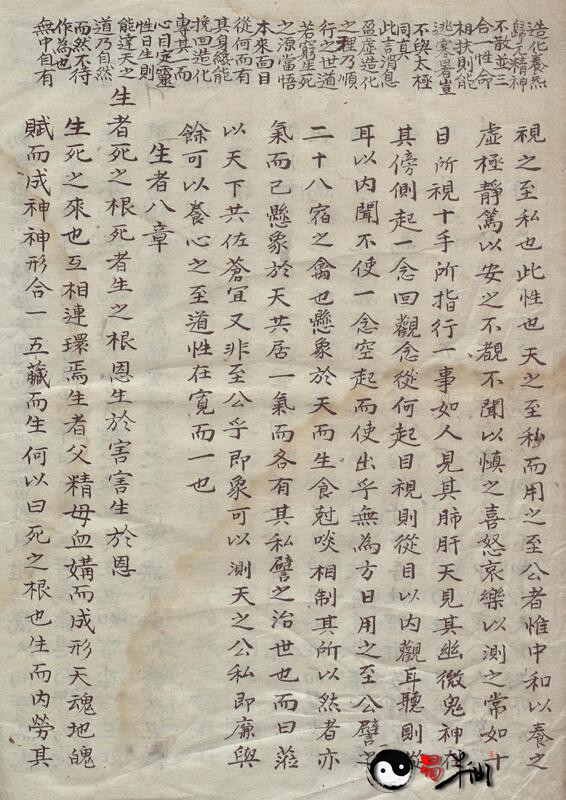 造化養炁
歸元精神
不散並三
合一性命
相扶則能
逃寒暑豈
不與太極
同真人
此言消息
盈虛造化
之理乃順
行之世道
若窮生死
之源當悟
本來面目
從何而有
其身緣能
挽回造化
專其一而
心目定靈
性日生則
能達天之
道乃自然
而然不待
作為也
無中自有
視之至私也此性也天之至私而用之至公者惟中和以養之
虛極靜篤以安之不覩不聞以慎之喜怒哀樂以測之常如十
目所視十手所指行一事如人見其肺肝天見其幽微鬼神在
其傍側起一念回觀念從何起目視則從目以內觀耳聽則從
耳以內聞不使一念空起而使出乎無為方日用之至公譬之
二十八宿之禽也懸象於天而生食尅啖相制其所以然者亦
氣而已懸象於天共居一氣而各有其私譬之治世也而曰蒞
以天下共佐蒼宜又非至公乎即象可以測天之公私即廉與
餘可以養心之至道性在寬而一也
生者八章
生者死之根死者生之根恩生於害害生於恩
生死之來也互相連環焉生者父精母血媾而成形天魂地魄
賦而成神神形合一五臟而生何以曰死之根也生而內勞其
易半仙